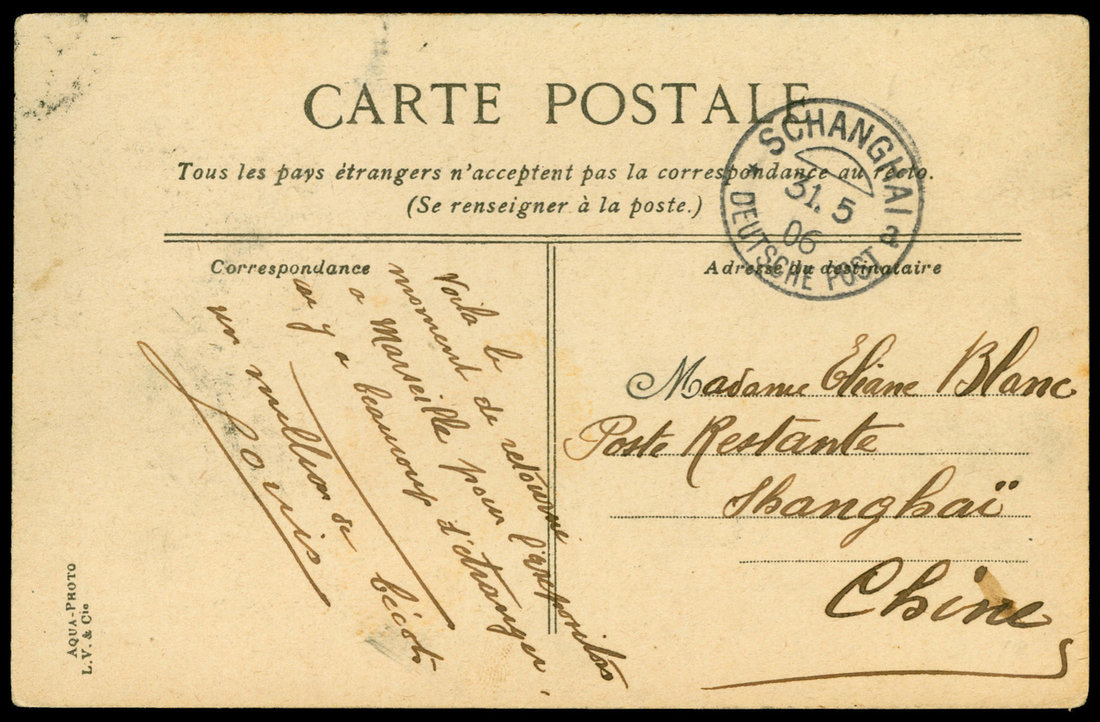 CARTE POSTALE
Tous les pays étrangers n'acceptent pas la correspondance au recto.
(Se renseigner à la poste.)
SCHANGHAI
31.5
06
a
DEUTSCHE POST
Correspondance
Adresse du destinataire
Voila le
moment de retourné
a Marseille pour
ar y a beaucoup d'étranger.
un million de bécots
Louis
Madame Éliane Blanc
Poste Restante
Shanghaï
Chine
AQUA-PHOTO
L.V. & Cie